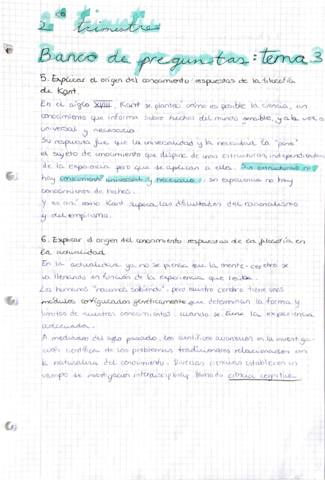 2º trimestre
Banco de preguntas: tema 3
5. Explicar el origen del conocimiento: respuestas de la filosofía
de Kant.
En el siglo XVIII, Kant se planteó cómo es posible la ciencia, un
conocimiento que informa sobre hechos del mundo sensible, y a la vez es
universal y necesario.
Su respuesta fue que la universalidad y la necesidad la "pone"
el sujeto de conocimiento que dispone de unas estructuras independientes
de la experiencia pero que se aplican a ella. Sin estructuras no
hay conocimiento universal y necesario, sin experiencia no hay
conocimientos de hechos.
Y es así como Kant supera las dificultades del racionalismo
y del empirismo.
6. Explicar el origen del conocimiento: respuestas de la filosofía en
la actualidad
En la actualidad ya no se piensa que la mente-cerebro se
va llenando en función de la experiencia que recibe.
Los humanos "nacemos sabiendo", pero nuestro cerebro tiene unos
módulos configurados genéticamente que determinan la forma y
límites de nuestros conocimientos cuando se tiene la experiencia
adecuada.
A mediados del siglo pasado, los científicos avanzaron en la investiga-
ción científica de los problemas tradicionales relacionados con
la naturaleza del conocimiento. Diversas ciencias establecen un
campo de investigación interdisciplinar llamado ciencia cognitiva.